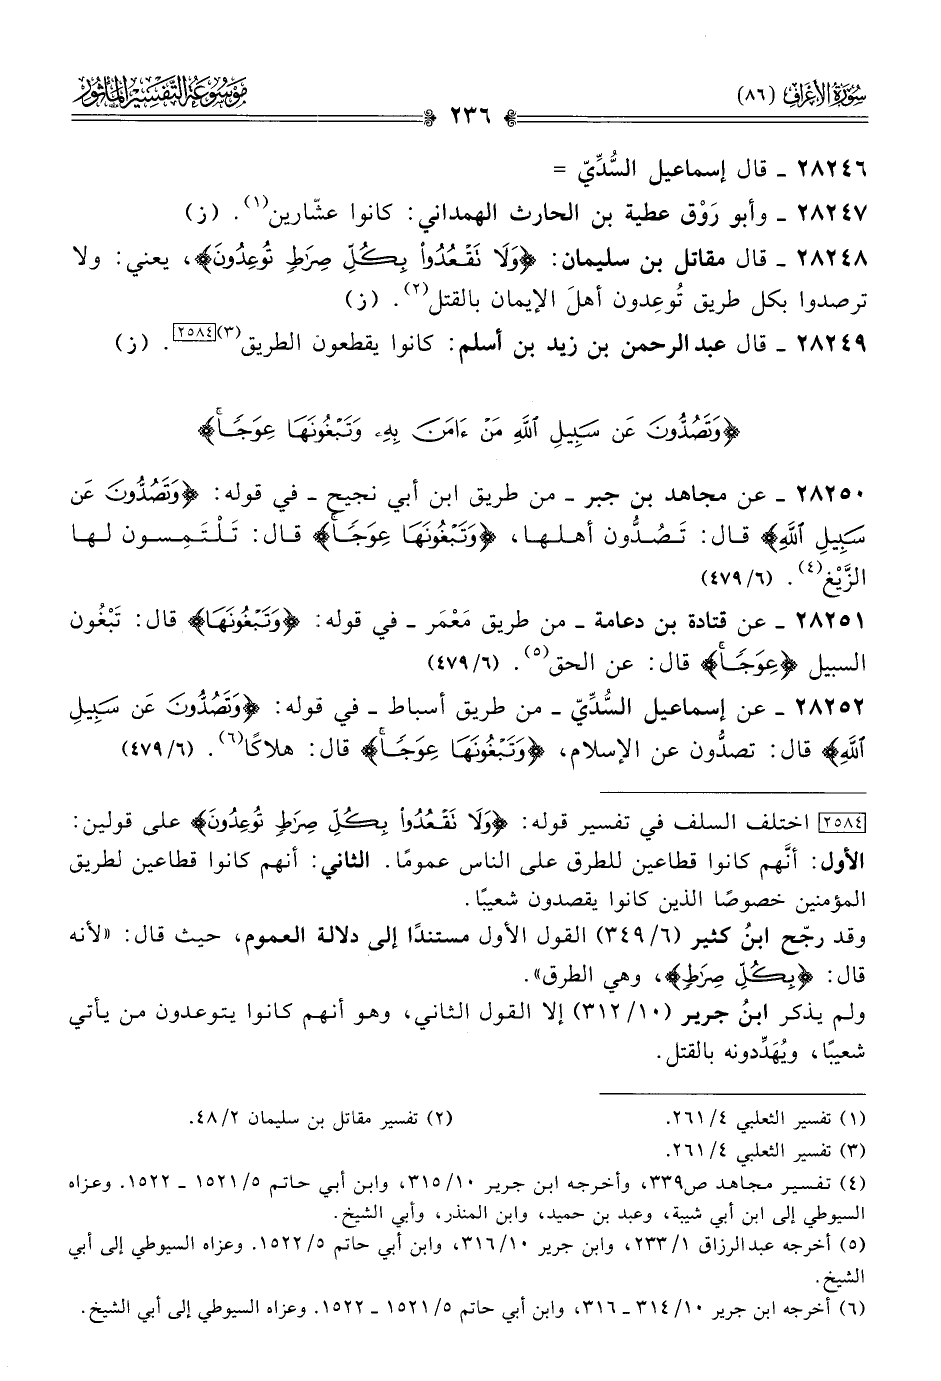 سورة الأعراف (٨٦)
موسوعة التفسير المأثور
٢٣٦
٢٨٢٤٦ ـ قال إسماعيل السُّدِّيّ =
٢٨٢٤٧ ـ وأبو رَوْق عطية بن الحارث الهمداني: كانوا عشّارين(١). (ز)
٢٨٢٤٨ ـ قال مقاتل بن سليمان: ﴿وَلَا نَقْعُدُوا۟ بِكُلِّ صِرَٰطٍ تُوعِدُونَ﴾، يعني: ولا
ترصدوا بكل طريق تُوعِدون أهلَ الإيمان بالقتل(٢). (ز)
٢٨٢٤٩ ـ قال عبد الرحمن بن زيد بن أسلم: كانوا يقطعون الطريق(٣)[٢٥٨٤]. (ز)
﴿وَتَصُدُّونَ عَن سَبِيلِ ٱللَّهِ مَنْ ءَامَنَ بِهِۦ وَتَبْغُونَهَا عِوَجًاۚ﴾
٢٨٢٥٠ ـ عن مجاهد بن جبر ـ من طريق ابن أبي نجيح ـ في قوله: ﴿وَتَصُدُّونَ عَن
سَبِيلِ ٱللَّهِ﴾ قال: تَصُدُّون أهلها، ﴿وَتَبْغُونَهَا عِوَجًاۚ﴾ قال: تَلْتَمِسون لها
الزَّيْغ(٤). (٤٧٩/٦)
٢٨٢٥١ ـ عن قتادة بن دعامة ـ من طريق مَعْمَر ـ في قوله: ﴿وَتَبْغُونَهَا﴾ قال: تَبْغُون
السبيل ﴿عِوَجًاۚ﴾ قال: عن الحق(٥). (٤٧٩/٦)
٢٨٢٥٢ ـ عن إسماعيل السُّدِّيّ ـ من طريق أسباط ـ في قوله: ﴿وَتَصُدُّونَ عَن سَبِيلِ
ٱللَّهِ﴾ قال: تصدُّون عن الإسلام، ﴿وَتَبْغُونَهَا عِوَجًاۚ﴾ قال: هلاكًا(٦). (٤٧٩/٦)
[٢٥٨٤] اختلف السلف في تفسير قوله: ﴿وَلَا نَقْعُدُوا۟ بِكُلِّ صِرَٰطٍ تُوعِدُونَ﴾ على قولين:
الأول: أنَّهم كانوا قطاعين للطرق على الناس عمومًا. الثاني: أنهم كانوا قطاعين لطريق
المؤمنين خصوصًا الذين كانوا يقصدون شعيبًا.
وقد رجّح ابنُ كثير (٣٤٩/٦) القول الأول مستندًا إلى دلالة العموم، حيث قال: «لأنه
قال: ﴿بِكُلِّ صِرَٰطٍ﴾، وهي الطرق».
ولم يذكر ابنُ جرير (٣١٢/١٠) إلا القول الثاني، وهو أنهم كانوا يتوعدون من يأتي
شعيبًا، ويُهَدِّدونه بالقتل.
(١) تفسير الثعلبي ٢٦١/٤.
(٢) تفسير مقاتل بن سليمان ٤٨/٢.
(٣) تفسير الثعلبي ٢٦١/٤.
(٤) تفسير مجاهد ص٣٣٩، وأخرجه ابن جرير ٣١٥/١٠، وابن أبي حاتم ١٥٢١/٥ ـ ١٥٢٢. وعزاه
السيوطي إلى ابن أبي شيبة، وعبد بن حميد، وابن المنذر، وأبي الشيخ.
(٥) أخرجه عبد الرزاق ٢٣٣/١، وابن جرير ٣١٦/١٠، وابن أبي حاتم ١٥٢٢/٥. وعزاه السيوطي إلى أبي
الشيخ.
(٦) أخرجه ابن جرير ٣١٤/١٠ ـ ٣١٦، وابن أبي حاتم ١٥٢١/٥ ـ ١٥٢٢. وعزاه السيوطي إلى أبي الشيخ.